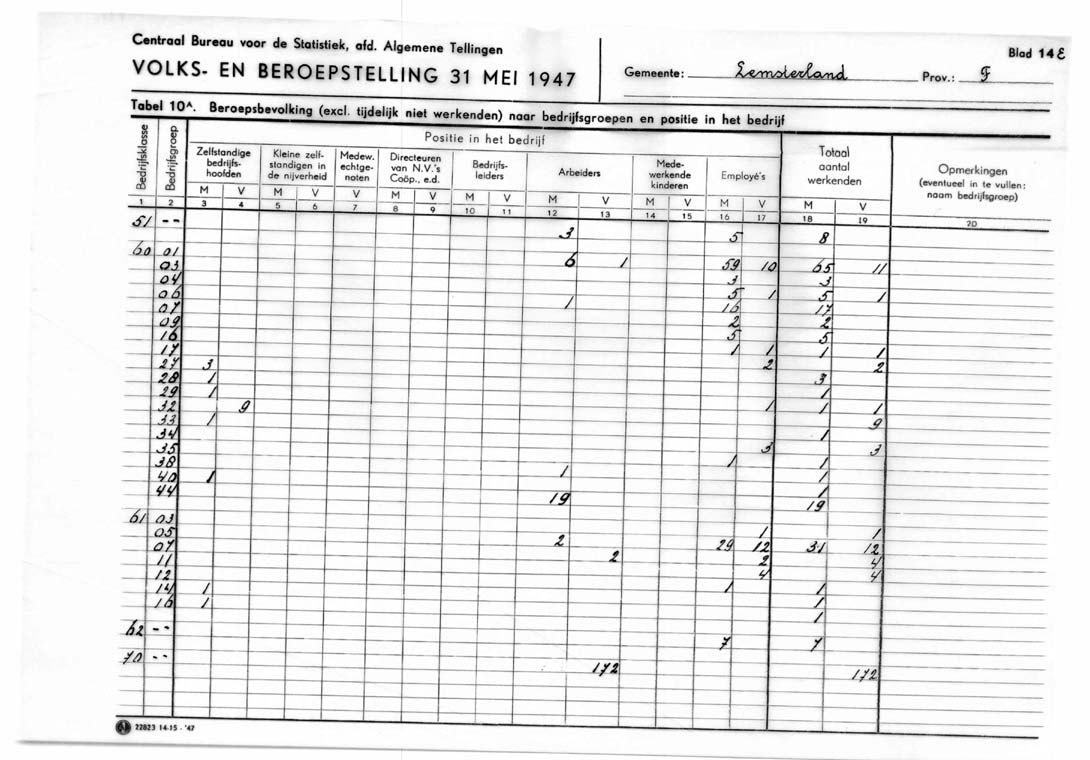 Centraal Bureau voor de Statistiek, afd. Algemene Tellingen
VOLKS- EN BEROEPSTELLING 31 MEI 1947
Gemeente: Lemsterland Prov.: F
Blad 14 E
Tabel 10A. Beroepsbevolking (excl. tijdelijk niet werkenden) naar bedrijfsgroepen en positie in het bedrijf
Bedrijfsklasse
Bedrijfsgroep
Positie in het bedrijf
Zelfstandige bedrijfs- hoofden
Kleine zelf- standigen in de nijverheid
Medew. echtge- noten
Directeuren van N.V.'s Coöp., e.d.
Bedrijfs- leiders
Arbeiders
Mede- werkende kinderen
Employé's
Totaal aantal werkenden
Opmerkingen (eventueel in te vullen: naam bedrijfsgroep)
M V M V V M V M V M V M V M V M V
1 2 3 4 5 6 7 8 9 10 11 12 13 14 15 16 17 18 19 20
51 -- 3 5 8
60 01 6 1 59 10 65 11
03 3 3
04 5 1 5 1
06 1 16 17
07 2 2
09 5 5
16 1 1 1 1
17 2 2
27 3 3
28 1 1
29 1 1 1 1
32 9 9
33 1 1
34 3 3
35 1 1
38 1 1
40 1 1
44 19 19
61 03 1 1
05 2 29 12 31 12
07 2 2 4
11 4 4
12 1 1
14 1 1
16 1 1
62 -- 7 7
70 -- 172 172
22823 14-15 - '47